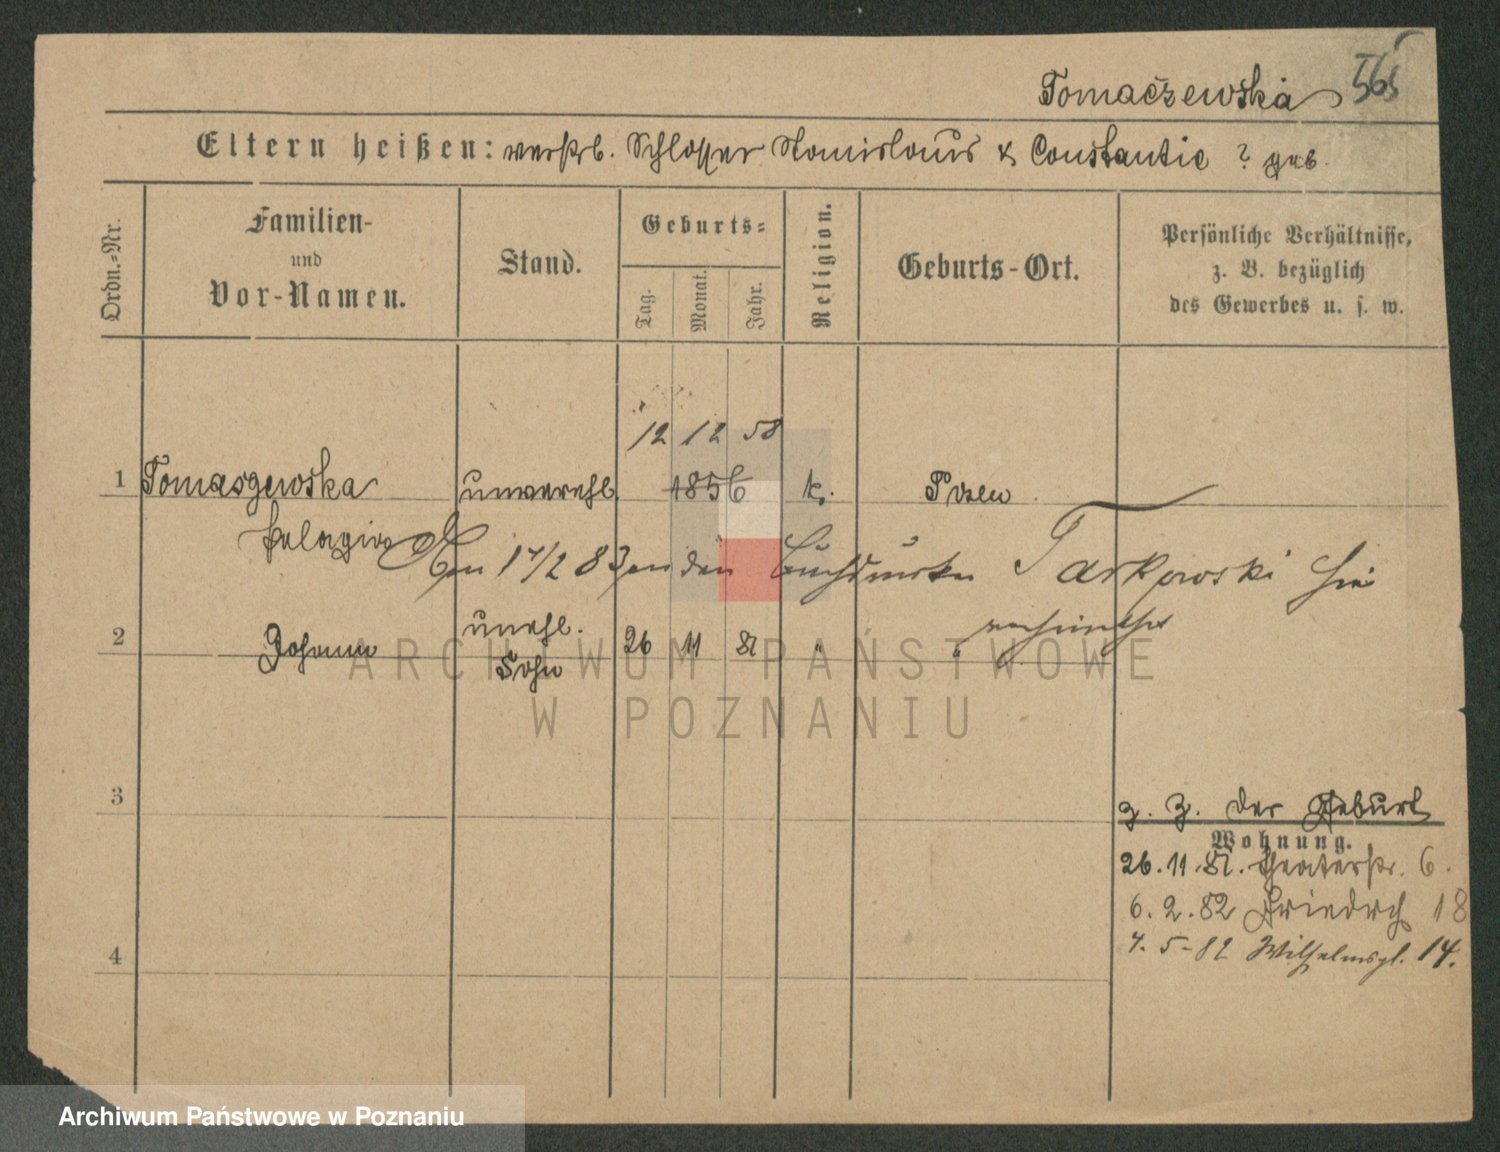 Tomaczewska 565
Eltern heißen: verstrb. Schlosser Stanislaus & Constantie ? geb.
Ordn.=Nr.
Familien-
und
Vor-Namen.
Stand.
Geburts=
Tag.
Monat.
Jahr.
Religion.
Geburts-Ort.
Persönliche Verhältnisse,
z. B. bezüglich
des Gewerbes u. s. w.
12 12 58
1 Tomaszewska unverehl. 1856 k. Posen
Pelagia
17/2 83 an den Buchdrucker Tarkowski hie
verheirathet
2 Johann unehl. 26 11 81 " "
Sohn
ARCHIWUM PAŃSTWOWE
W POZNANIU
3
z. Z. der Geburt
Wohnung.
26.11.81. Theaterstr. 6.
6.2.82 Friedrch 18
4
7.5-82 Wilhelmspl. 14.
Archiwum Państwowe w Poznaniu